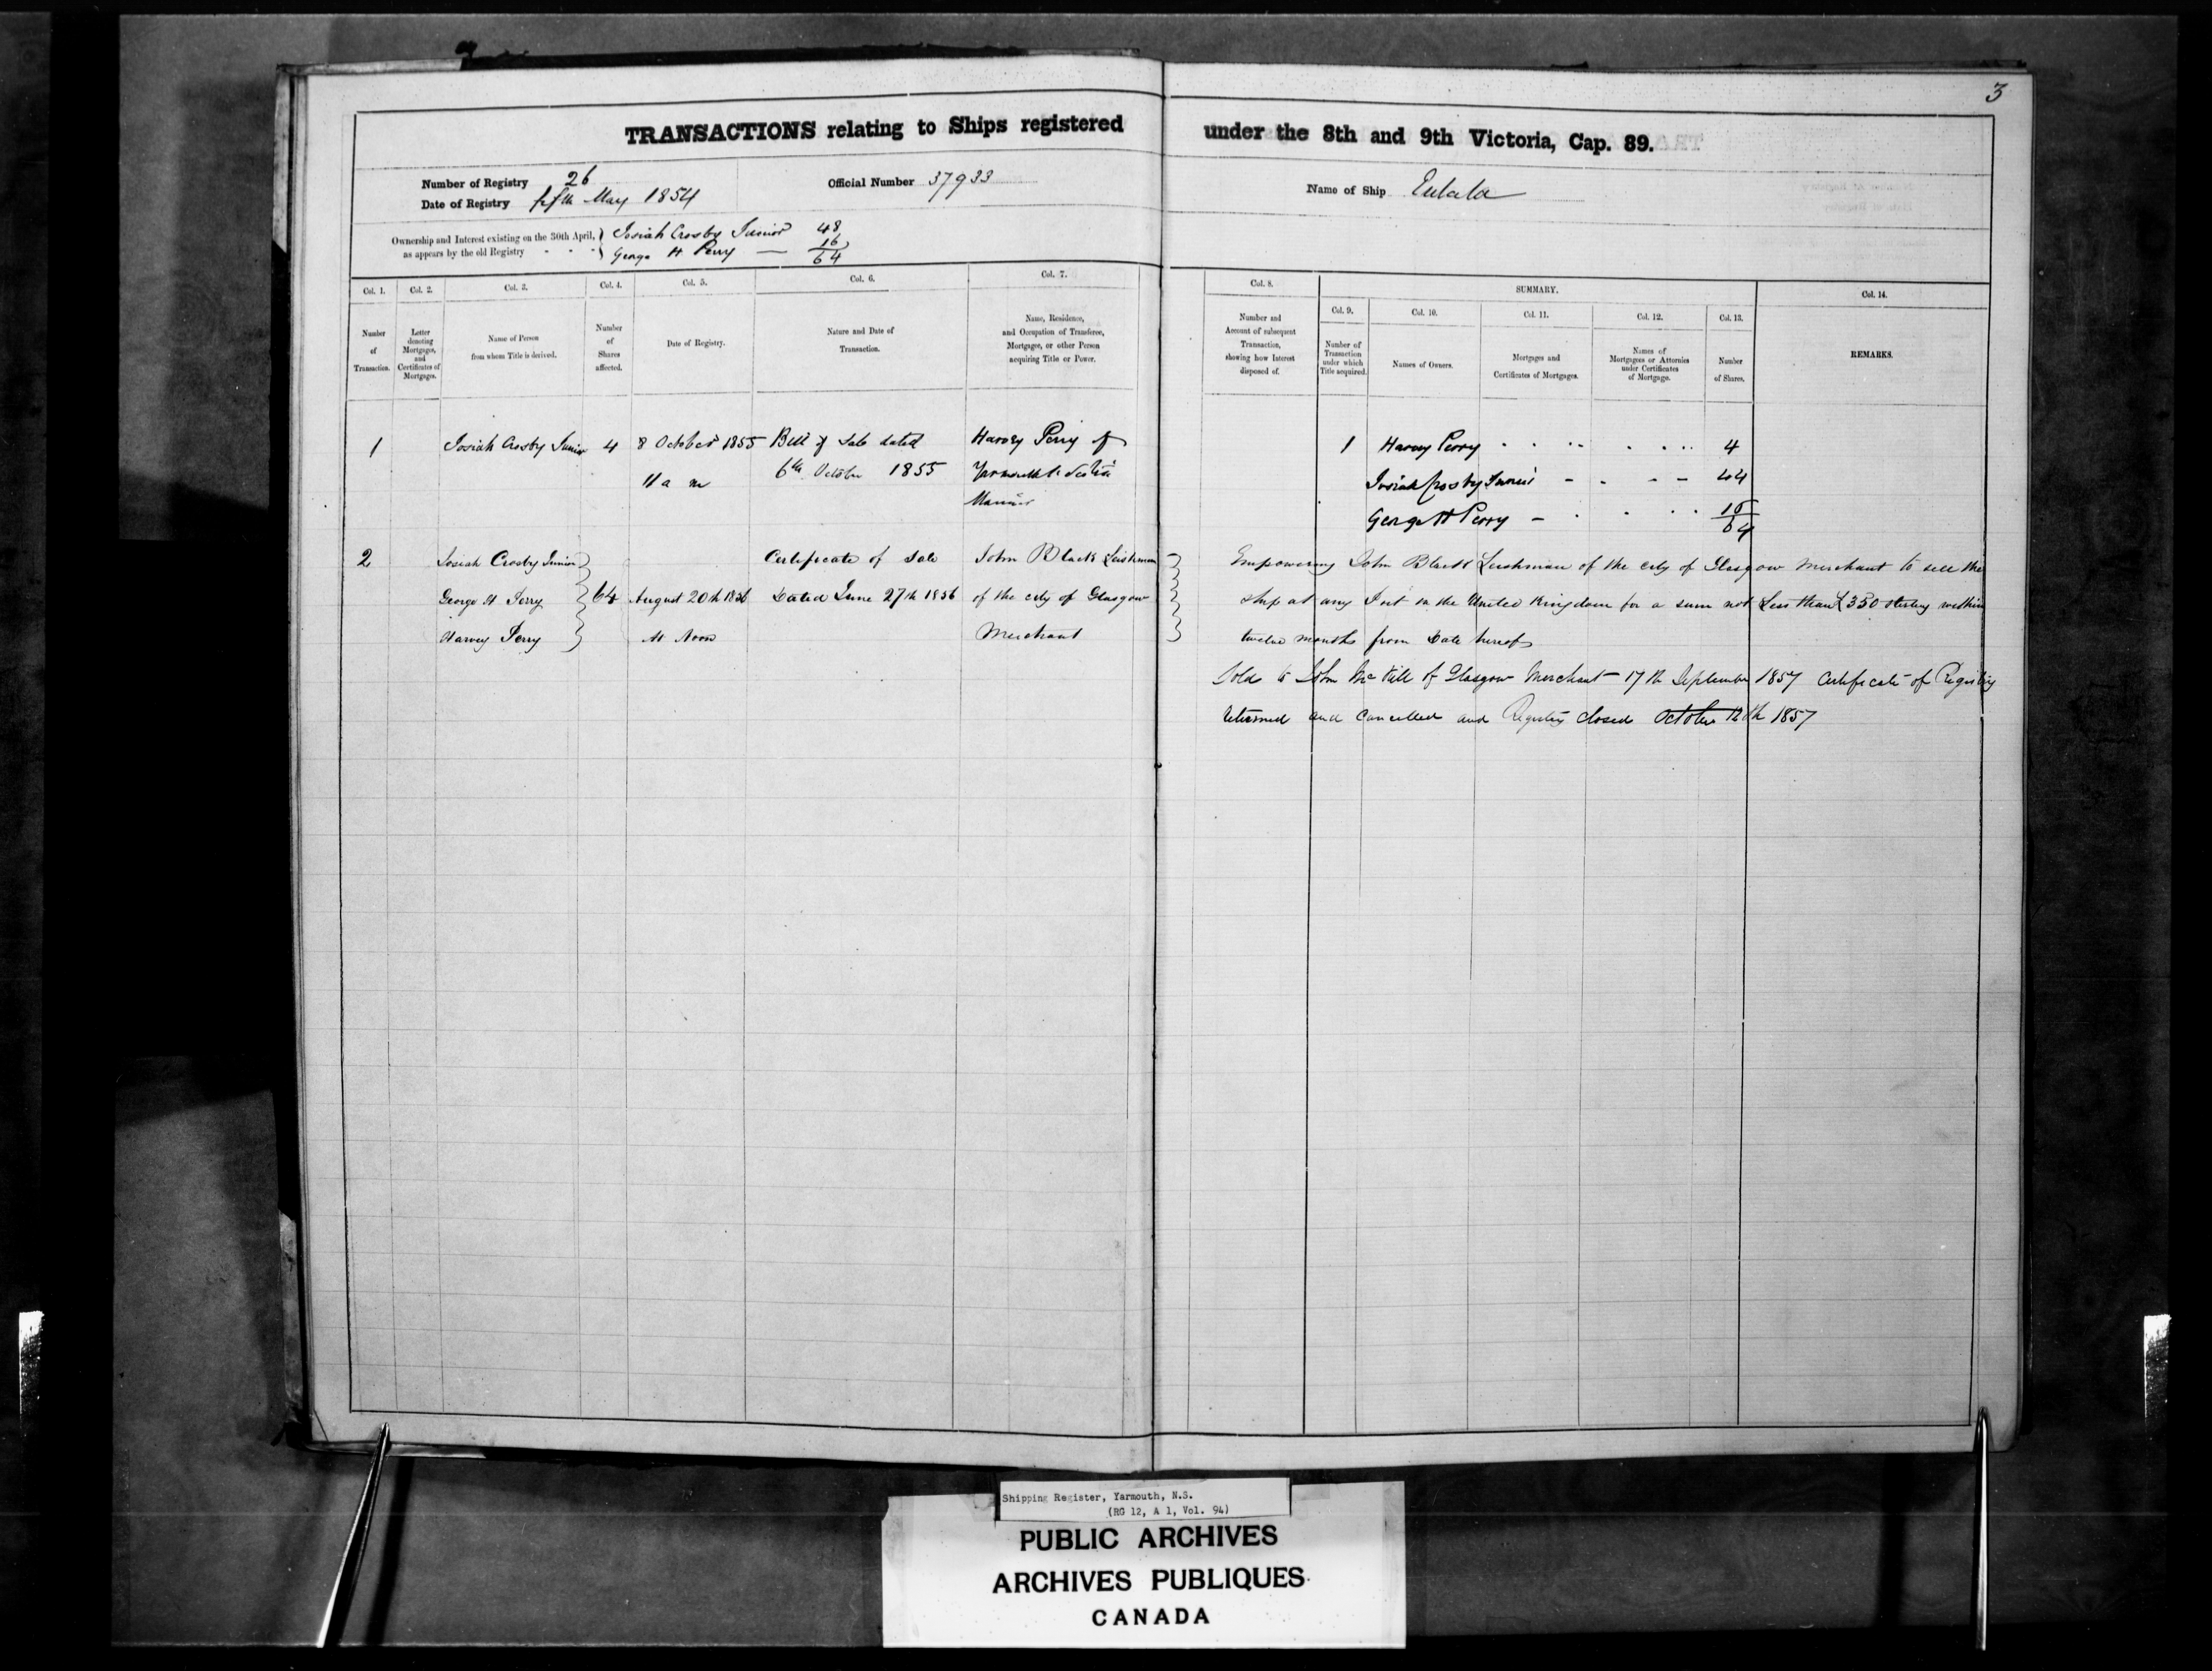 3
TRANSACTIONS relating to Ships registered under the 8th and 9th Victoria, Cap. 89.
Number of Registry 26
Date of Registry fifth May 1854
Official Number 37933
Name of Ship Eulala
Ownership and Interest existing on the 30th April, as appears by the old Registry
Josiah Crosby Junior 48
George H Perry — 16
64
Col. 1.
Number of Transaction.
Col. 2.
Letter denoting Mortgages, and Certificates of Mortgages.
Col. 3.
Name of Person from whom Title is derived.
Col. 4.
Number of Shares affected.
Col. 5.
Date of Registry.
Col. 6.
Nature and Date of Transaction.
Col. 7.
Name, Residence, and Occupation of Transferee, Mortgagee, or other Person acquiring Title or Power.
Col. 8.
Number and Account of subsequent Transaction, shewing how Interest disposed of.
SUMMARY.
Col. 9.
Number of Transaction under which Title acquired.
Col. 10.
Names of Owners.
Col. 11.
Mortgages and Certificates of Mortgages.
Col. 12.
Names of Mortgagees or Attornies under Certificates of Mortgage.
Col. 13.
Number of Shares.
Col. 14.
REMARKS.
1 Josiah Crosby Junior 4 8 October 1855 Bill of Sale dated Harvey Perry of
11 a m 6th October 1855 Yarmouth
Mariner
1 Harvey Perry 4
Josiah Crosby Junior 44
George H Perry 16
64
2 Josiah Crosby Junior Certificate of Sale John Black Leishman
George H Perry 64 August 20th 1856 Dated June 27th 1856 of the city of Glasgow
Harvey Perry At Noon Merchant
Empowering John Black Leishman of the city of Glasgow Merchant to sell the
ship at any Port in the United Kingdom for a sum not Less than £350 sterling within
twelve months from Date hereof
Sold to John of Glasgow Merchant 17th September 1857 Certificate of Registry
returned and cancelled and Registry closed October 12th 1857
Shipping Register, Yarmouth, N.S.
(RG 12, A 1, Vol. 94)
PUBLIC ARCHIVES
ARCHIVES PUBLIQUES
CANADA